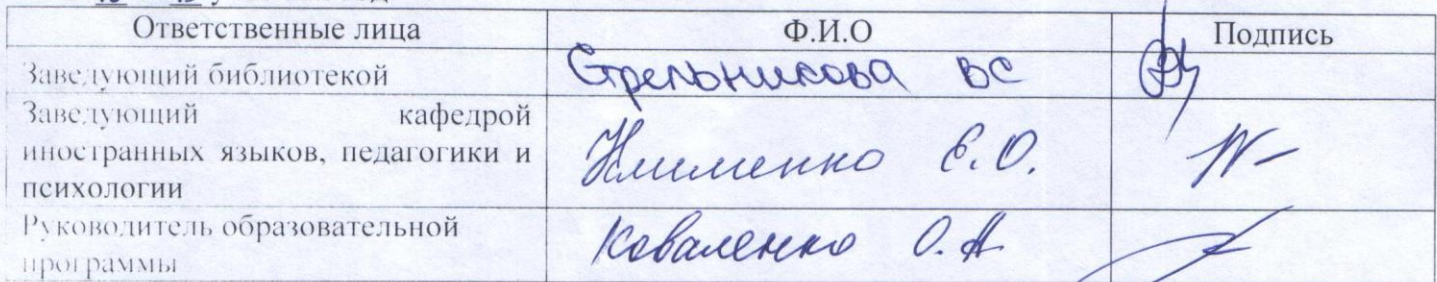 Ответственные лица Ф.И.О Подпись
Заведующий библиотекой Стрельникова ВС
Заведующий кафедрой
иностранных языков, педагогики и
психологии
Клименко Е.О.
Руководитель образовательной
программы
Коваленко О.А